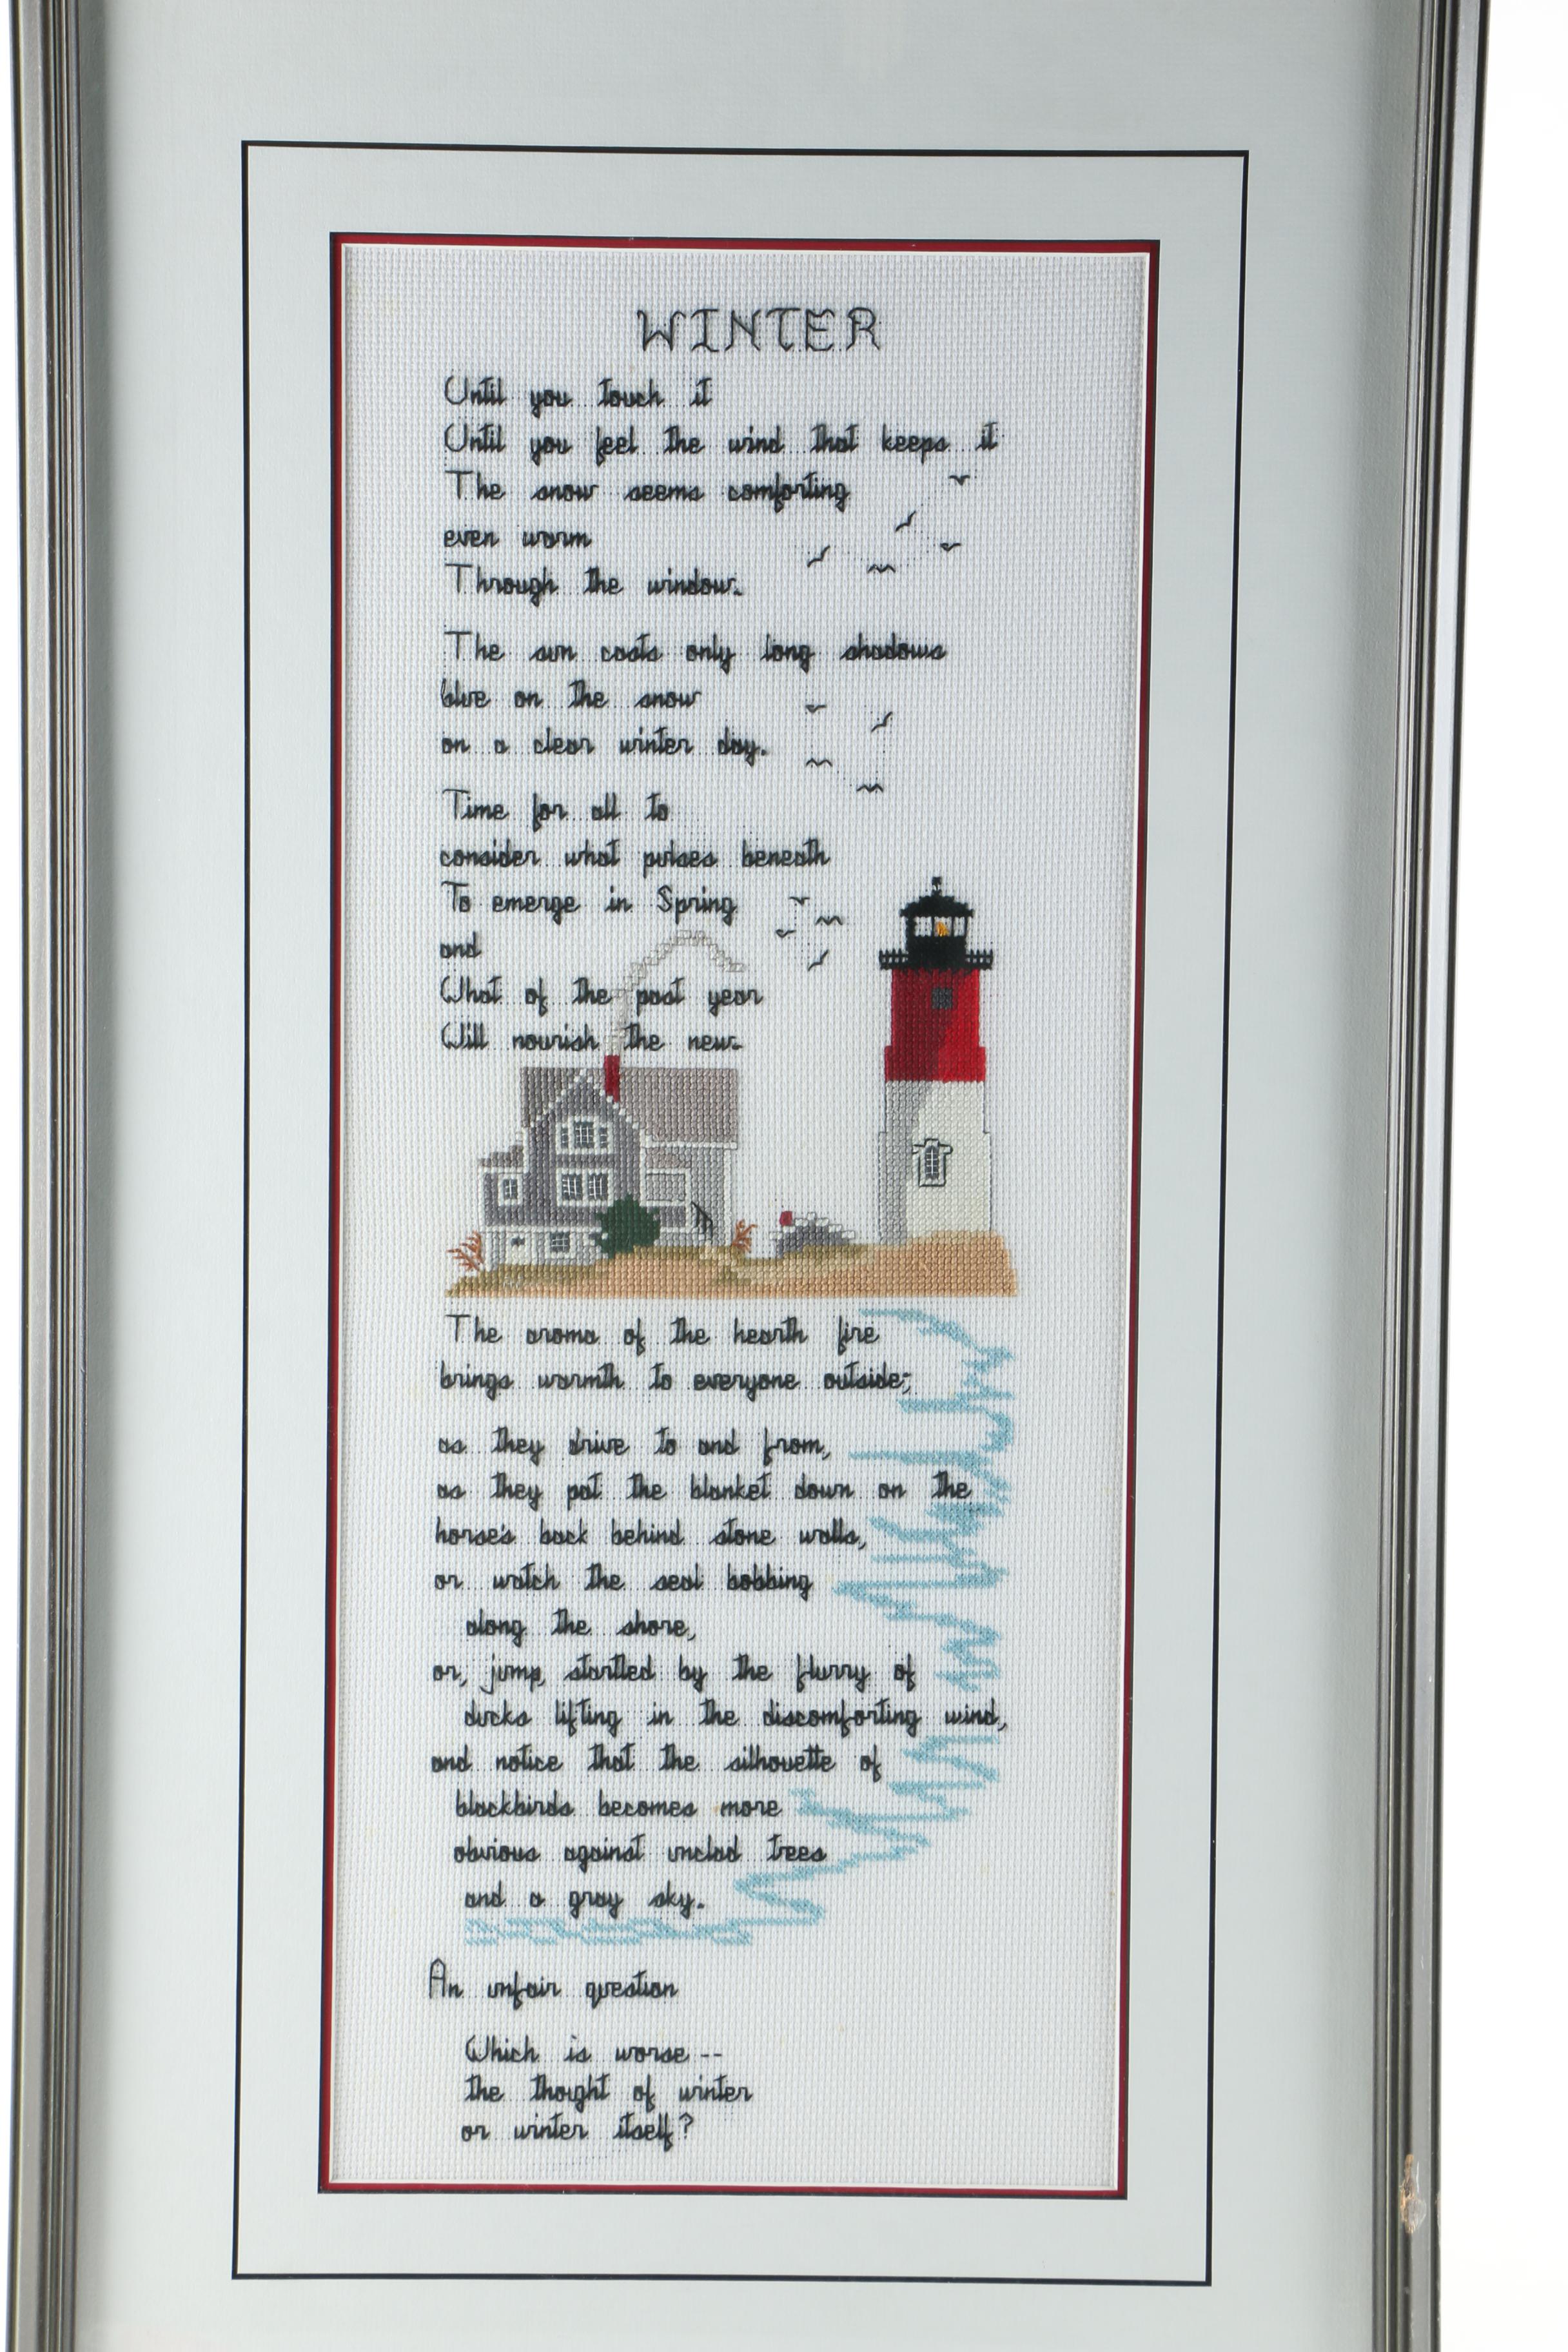 WINTER
Until you touch it
Until you feel the wind that keeps it
The snow seems comforting
even warm
Through the window.
The sun casts only long shadows
blue on the snow
on a clear winter day.
Time for all to
consider what pulses beneath
To emerge in Spring
and
What of the past year
Will nourish the new.
The aroma of the hearth fire
brings warmth to everyone outside;
as they drive to and from,
as they pat the blanket down on the
horse's back behind stone walls,
or watch the seal bobbing
along the shore,
or, jump, startled by the flurry of
ducks lifting in the discomforting wind,
and notice that the silhouette of
blackbirds becomes more
obvious against unclad trees
and a gray sky.
An unfair question
Which is worse --
the thought of winter
or winter itself?